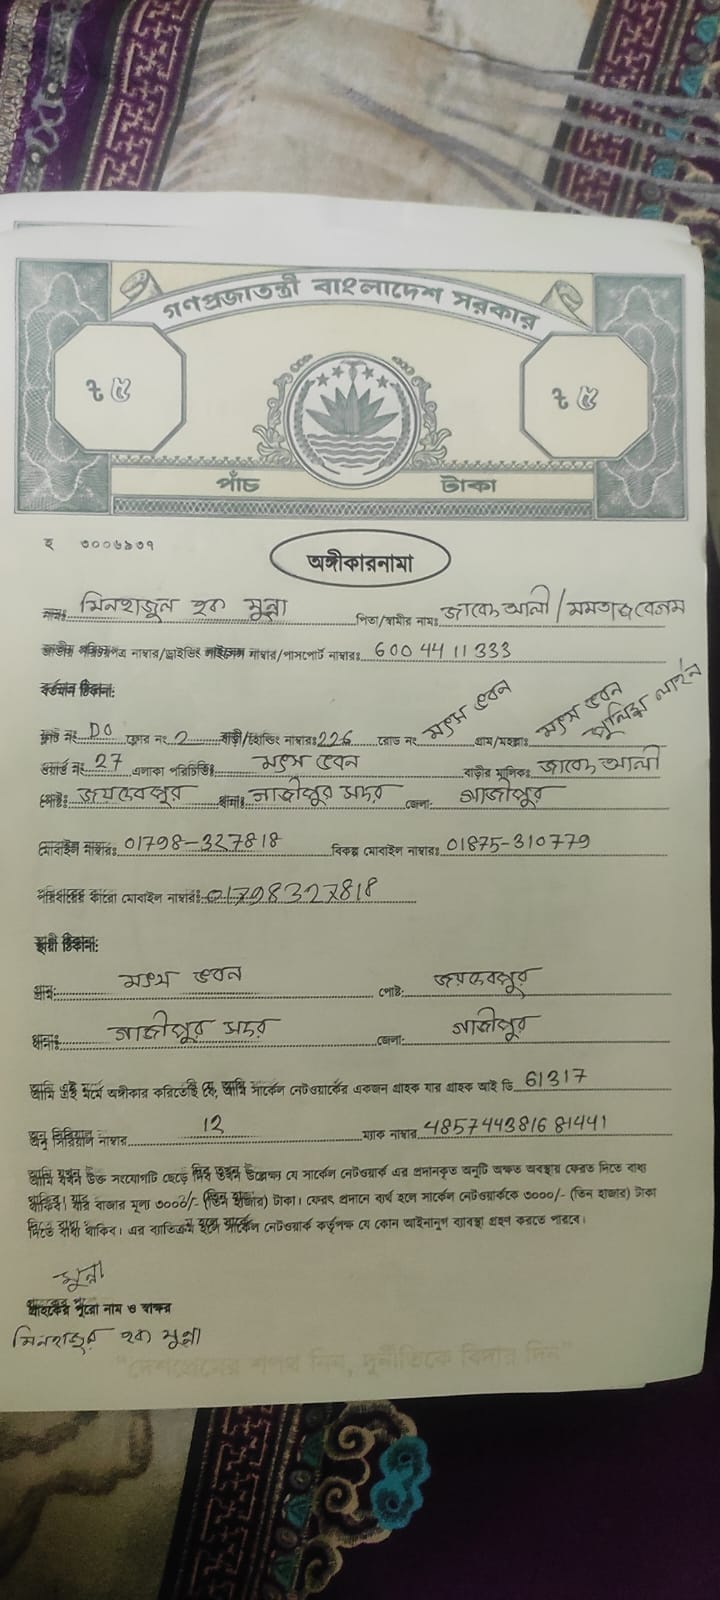 গণপ্রজাতন্ত্রী বাংলাদেশ সরকার
৳ ৫ ৳ ৫
পাঁচ টাকা
হ ৩০০৬৯৩৭
অঙ্গীকারনামা
নামঃ মিনহাজুল হক মুন্না পিতা/স্বামীর নামঃ জাবেদ আলী / মমতাজ বেগম
জাতীয় পরিচয়পত্র নাম্বার/ড্রাইভিং লাইসেন্স নাম্বার/পাসপোর্ট নাম্বারঃ 600 44 11 333
বর্তমান ঠিকানা:
ফ্লাট নং DO ফ্লোর নং 2 বাড়ী/হোল্ডিং নাম্বারঃ 226 রোড নং মৎস ভবন গ্রাম/মহল্লাঃ মৎস ভবন পুলিশ লাইন
ওয়ার্ড নং 27 এলাকা পরিচিতিঃ মৎস ভবন বাড়ীর মালিকঃ জাবেদ আলী
পোষ্টঃ জয়দেবপুর থানাঃ গাজীপুর সদর জেলা: গাজীপুর
মোবাইল নাম্বারঃ 01798-327818 বিকল্প মোবাইল নাম্বারঃ 01875-310779
পরিবারের কারো মোবাইল নাম্বারঃ 01798327818
স্থায়ী ঠিকানা:
গ্রাম: মৎস ভবন পোষ্ট: জয়দেবপুর
থানাঃ গাজীপুর সদর জেলা: গাজীপুর
আমি এই মর্মে অঙ্গীকার করিতেছি যে, আমি সার্কেল নেটওয়ার্কের একজন গ্রাহক যার গ্রাহক আই ডি 61317
অনু সিরিয়াল নাম্বার 12 ম্যাক নাম্বার 4857443816 81441
আমি যখন উক্ত সংযোগটি ছেড়ে দিব তখন উল্লেক্ষ্য যে সার্কেল নেটওয়ার্ক এর প্রদানকৃত অনুটি অক্ষত অবস্থায় ফেরত দিতে বাধ্য
থাকিব। যার বাজার মূল্য ৩০০০/- (তিন হাজার) টাকা। ফেরৎ প্রদানে ব্যর্থ হলে সার্কেল নেটওয়ার্ককে ৩০০০/- (তিন হাজার) টাকা
দিতে বাধ্য থাকিব। এর ব্যতিক্রম হলে সার্কেল নেটওয়ার্ক কর্তৃপক্ষ যে কোন আইনানুগ ব্যবস্থা গ্রহণ করতে পারবে।
মুন্না
গ্রাহকের পুরো নাম ও স্বাক্ষর
মিনহাজুর হক মুন্না
"দেশপ্রেমের শপথ নিন, দুর্নীতিকে বিদায় দিন"